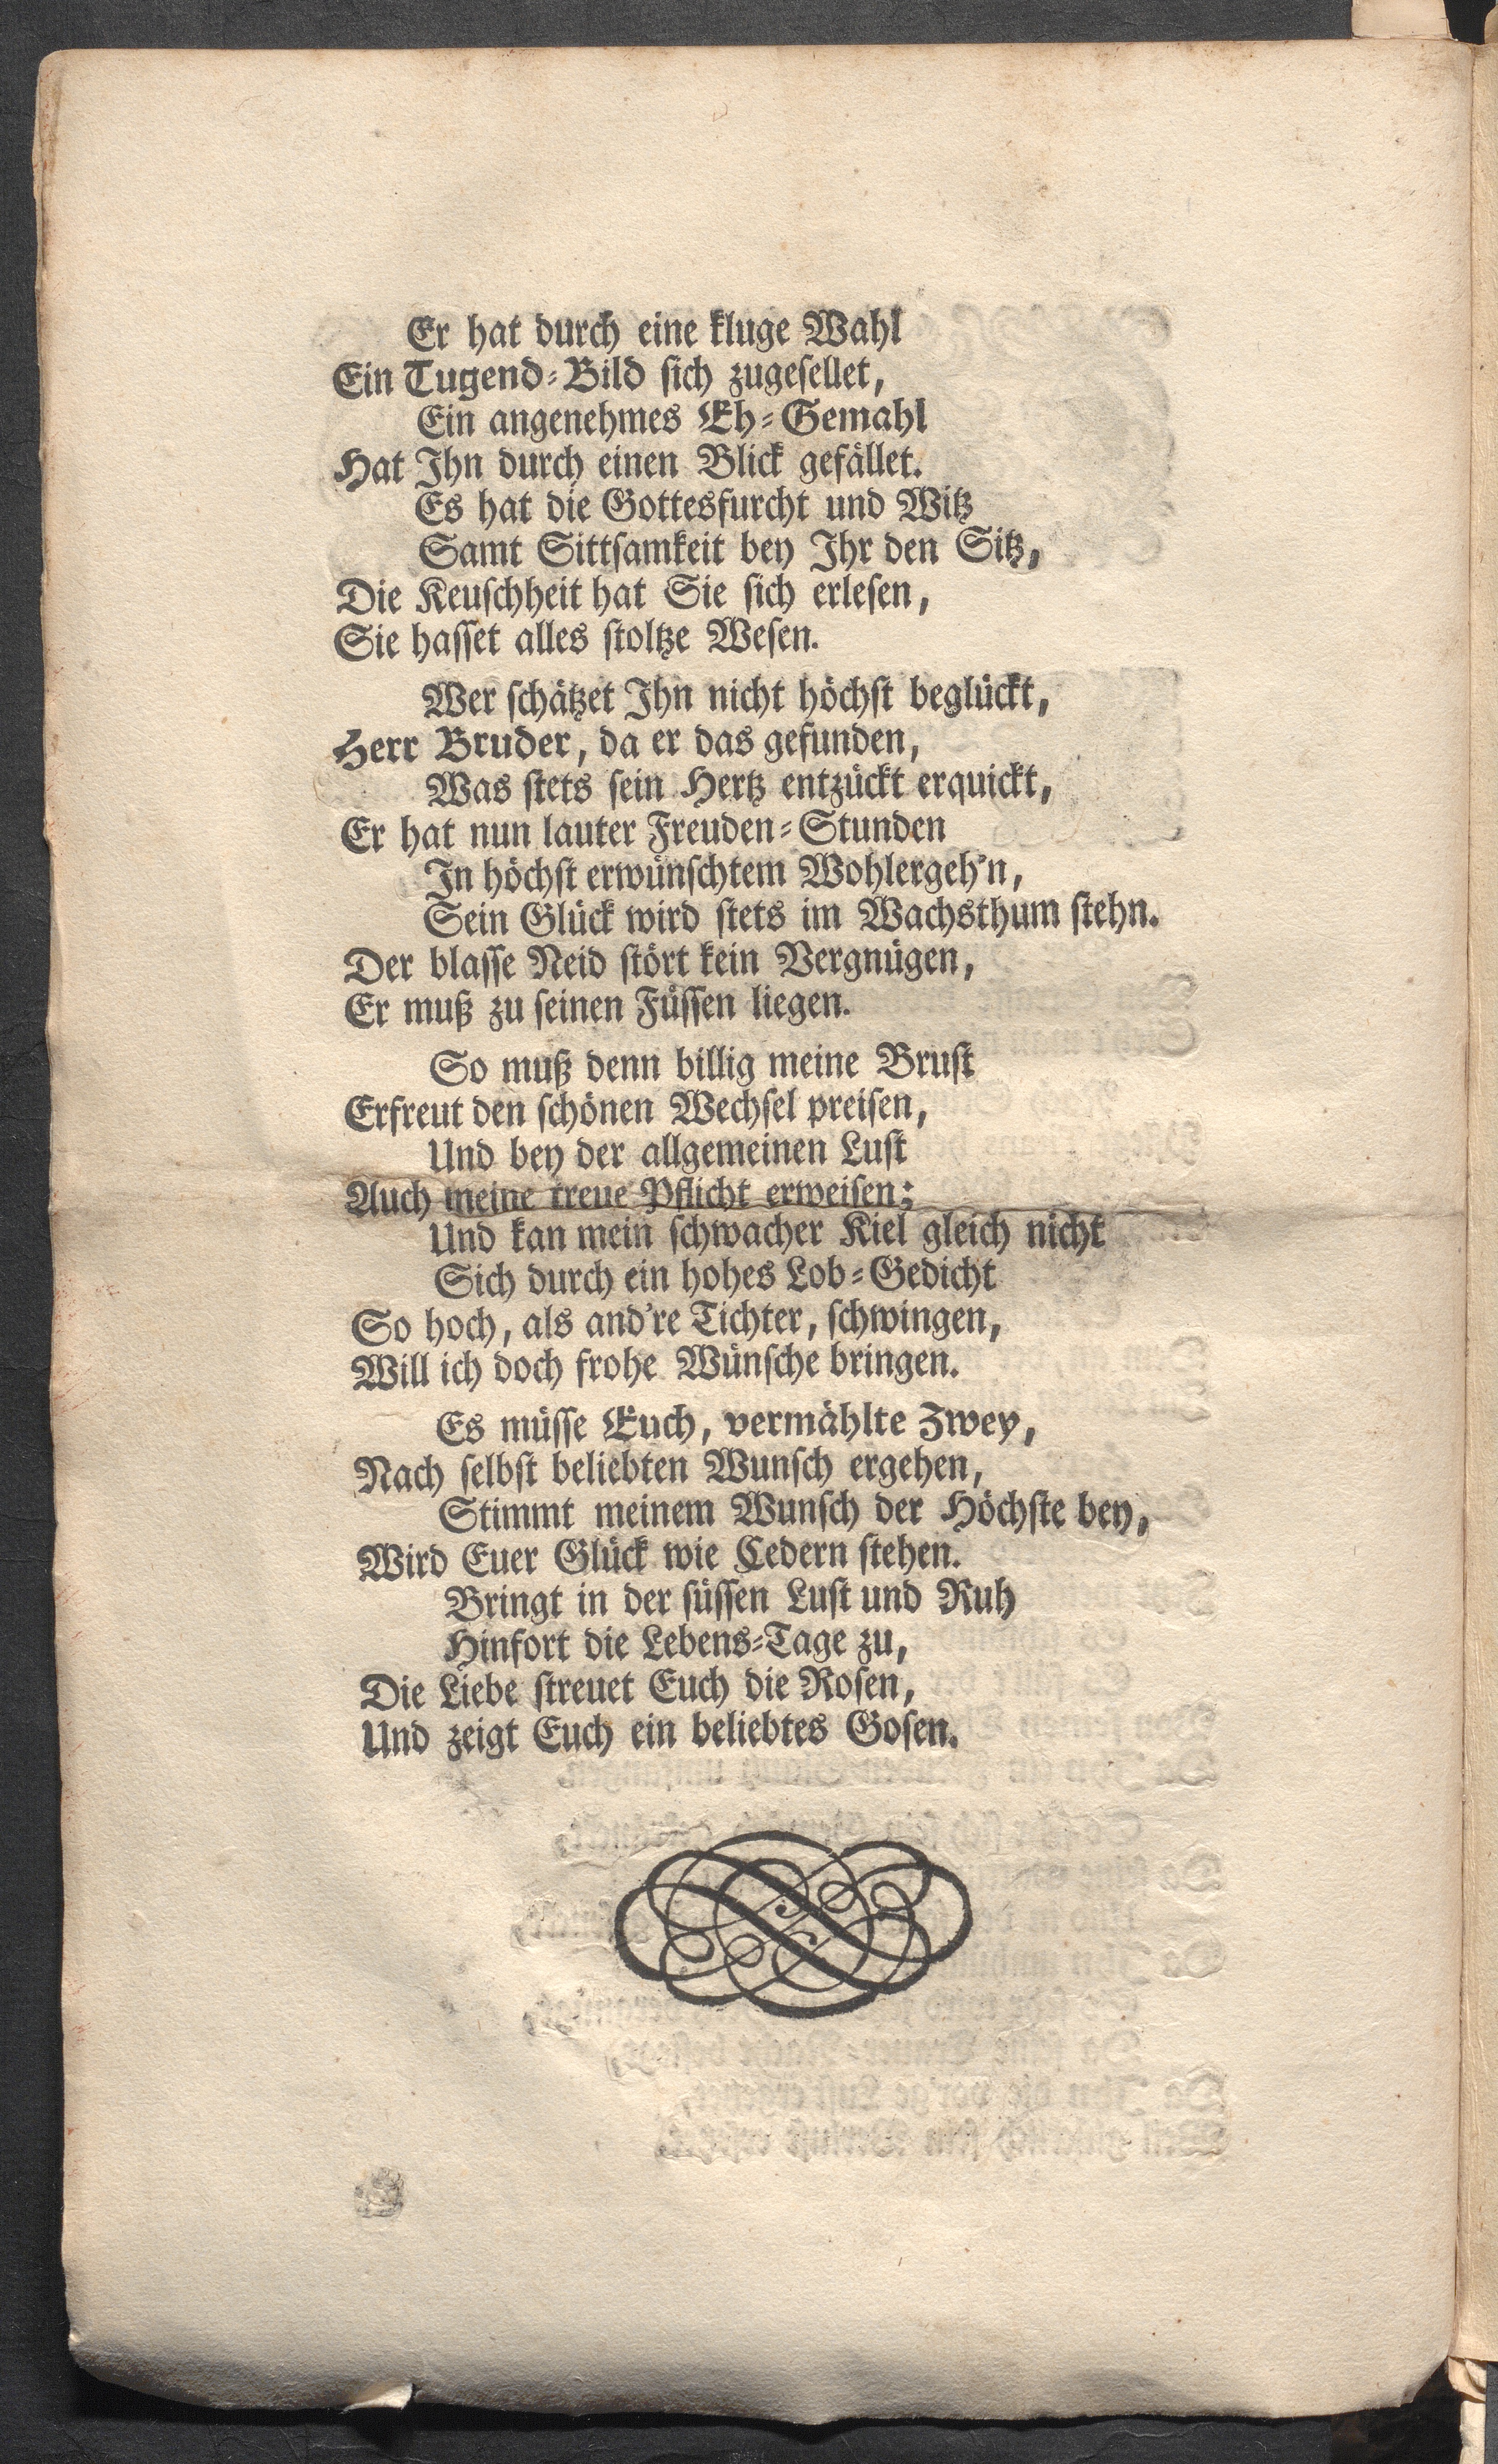 Er hat durch eine kluge Wahl
Ein Tugend-Bild sich zugesellet,
Ein angenehmes Eh-Gemahl
Hat Ihn durch einen Blick gefället.
Es hat die Gottesfurcht und Witz
Samt Sittsamkeit bey Ihr den Sitz,
Die Keuschheit hat Sie sich erlesen,
Sie hasset alles stoltze Wesen.
Wer schätzet Ihn nicht höchst beglückt,
Herr Bruder, da er das gefunden,
Was stets sein Hertz entzückt erquickt,
Er hat nun lauter Freuden-Stunden
In höchst erwünschtem Wohlergeh'n,
Sein Glück wird stets im Wachsthum stehn.
Der blasse Neid stört kein Vergnügen,
Er muß zu seinen Füssen liegen.
So muß denn billig meine Brust
Erfreut den schönen Wechsel preisen,
Und bey der allgemeinen Lust
Auch meine treue Pflicht erweisen;
Und kan mein schwacher Kiel gleich nicht
Sich durch ein hohes Lob-Gedicht
So hoch, als and're Tichter, schwingen,
Will ich doch frohe Wünsche bringen.
Es müsse Euch, vermählte Zwey,
Nach selbst beliebten Wunsch ergehen,
Stimmt meinem Wunsch der Höchste bey,
Wird Euer Glück wie Cedern stehen.
Bringt in der süssen Lust und Ruh
Hinfort die Lebens-Tage zu,
Die Liebe streuet Euch die Rosen,
Und zeigt Euch ein beliebtes Gosen.